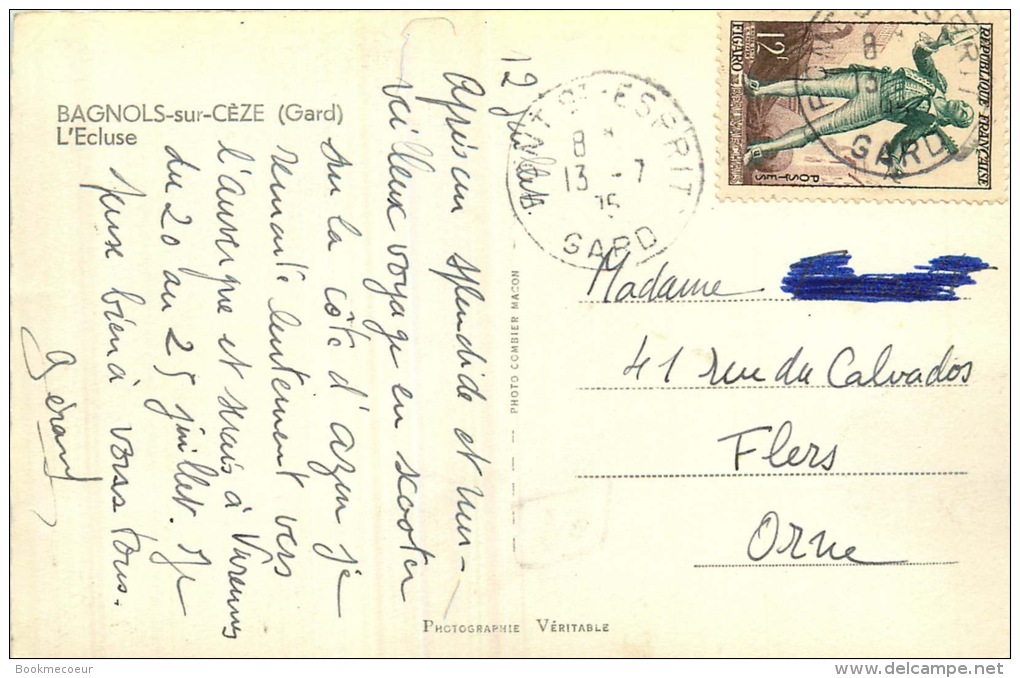 BAGNOLS-sur-CÈZE (Gard)
L'Ecluse
12 Juillet
Après un splendide et mer-
veilleux voyage en scooter
sur la côte d'azur je
remonte lentement vers
l'auvergne et serais à
du 20 au 25 juillet. Je
pense bien à vous tous.
Gérard
PHOTO COMBIER MACON
PHOTOGRAPHIE VÉRITABLE
PONT-ST-ESPRIT
8 *
13 - 7
GARD
PONT-ST-ESPRIT
8 *
13
GARD
REPUBLIQUE FRANÇAISE
POSTES
12F
FIGARO
Madame
41 rue du Calvados
Flers
Orne
Bookmecoeur
www.delcampe.net